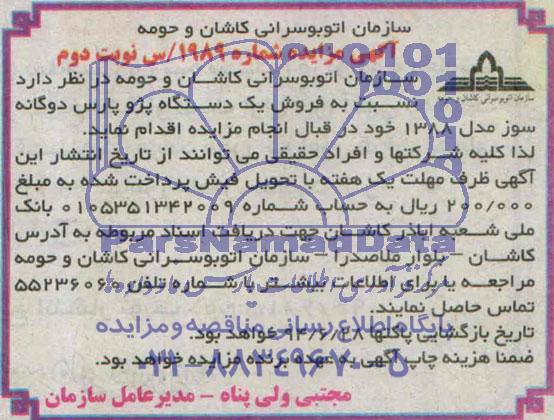 سازمان اتوبوسرانی کاشان و حومه
آگهی مزایده شماره ۱۹۸۹/س نوبت دوم
سازمان اتوبوسرانی کاشان و حومه در نظر دارد
سازمان اتوبوسرانی کاشان و حومه
نسبت به فروش یک دستگاه پژو پارس دوگانه
سوز مدل ۱۳۸۸ خود در قبال انجام مزایده اقدام نماید.
لذا کلیه شرکتها و افراد حقیقی می توانند از تاریخ انتشار این
آگهی ظرف مهلت یک هفته با تحویل فیش پرداخت شده به مبلغ
۲۰۰/۰۰۰ ریال به حساب شماره ۰۱۰۵۳۵۱۳۴۲۰۰۹ بانک
ملی شعبه اباذر کاشان جهت دریافت اسناد مربوطه به آدرس
کاشان – بلوار ملاصدرا – سازمان اتوبوسرانی کاشان و حومه
مراجعه یا برای اطلاعات بیشتر با شماره تلفن ۵۵۲۳۶۰۶۰
تماس حاصل نمایند.
تاریخ بازگشایی پاکتها ۹۴/۶/۲۸ خواهد بود.
ضمنا هزینه چاپ آگهی به عهده برنده مزایده خواهد بود.
مجتبی ولی پناه – مدیرعامل سازمان
ParsNamadData
پایگاه اطلاع رسانی مناقصه و مزایده
۰۲۱-۸۸۳۴۹۶۷۰-۵